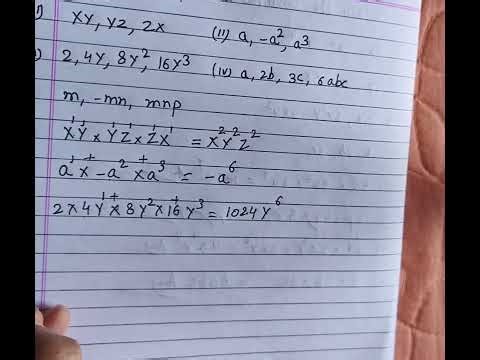 i) XY, YZ, ZX (ii) a, -a², a³
) 2, 4Y, 8Y², 16Y³ (iv) a, 2b, 3c, 6abc
m, -mn, mnp
X¹Y¹ × Y¹Z¹ × Z¹X¹ = X²Y²Z²
a¹ × -a² × a³ = -a⁶
2 × 4Y¹ × 8Y² × 16Y³ = 1024Y⁶